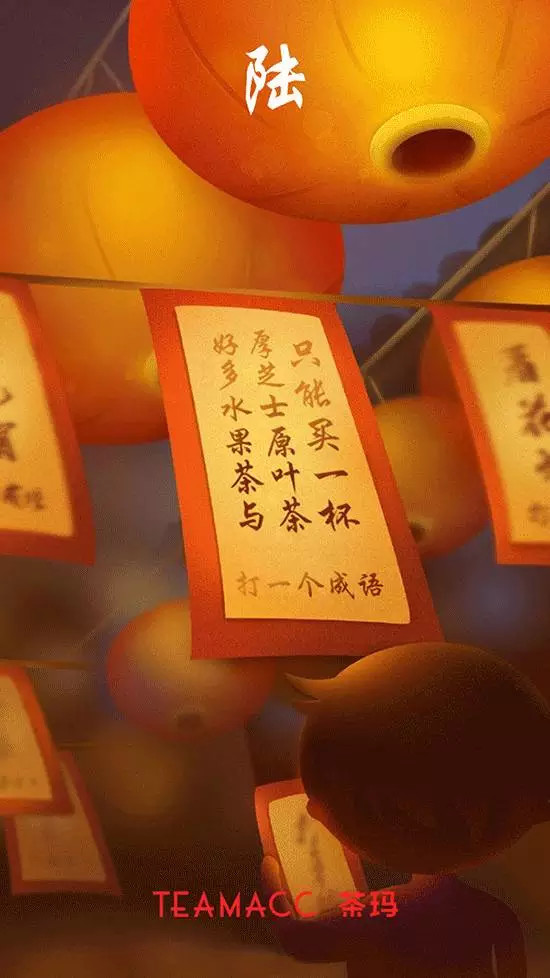 陆
好多水果茶与
厚芝士原叶茶
只能买一杯
打一个成语
TEAMACC 茶玛